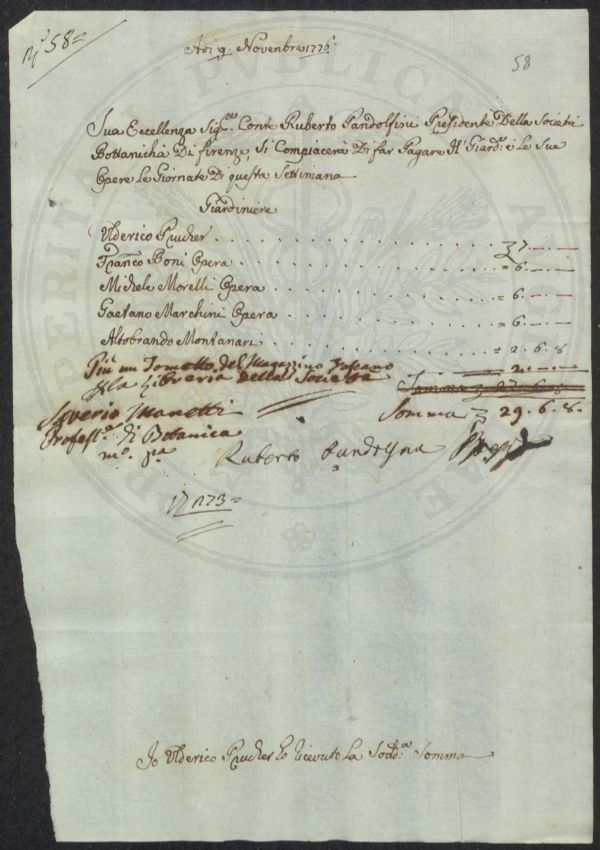 N.º 58=
58
Adi 9 Novembre 1776
Sua Eccellenza Sig.re Conte Ruberto Pandolfini Presidente Della Società
Bottanicha Di firenze, Si Compiacerà Di far Pagare Il Giard.e e Le Sua
Opere Le Giornate Di questa Settimana
Giardiniere
Ulderico Prucher . . . . . . . . . . . . 7.—.—
Franco Boni Opera . . . . . . . . . . . = 6.—.—
Michele Morelli Opera . . . . . . . . . . = 6.—.—
Gaetano Marchini Opera . . . . . . . . . = 6.—.—
Altobrando Montanari . . . . . . . . . . = 2.6.8
Più un Tometto del Magazzino Toscano
p la Libreria della Società = 2.—.—
Somma = 27.6.8
Saverio Manetti
Somma = 29.6.8.
Profess.re di Botanica
m.o p.a
Ruberto Pandolfini
173=
Io Ulderico Prucher ho riceuto La Sodd.a Somma